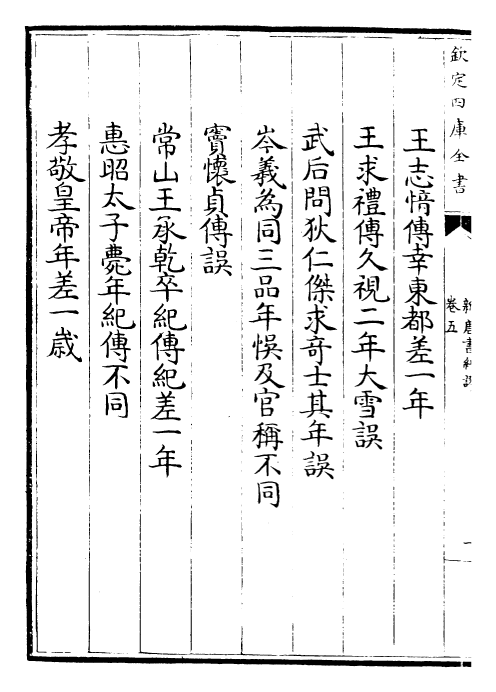 欽定四庫全書
新唐書糾謬
卷五
王志愔傳幸東都差一年
王求禮傳久視二年大雪誤
武后問狄仁傑求奇士其年誤
岑義為同三品年悞及官稱不同
竇懷貞傳誤
常山王承乾卒紀傳紀差一年
惠昭太子薨年紀傳不同
孝敬皇帝年差一歳